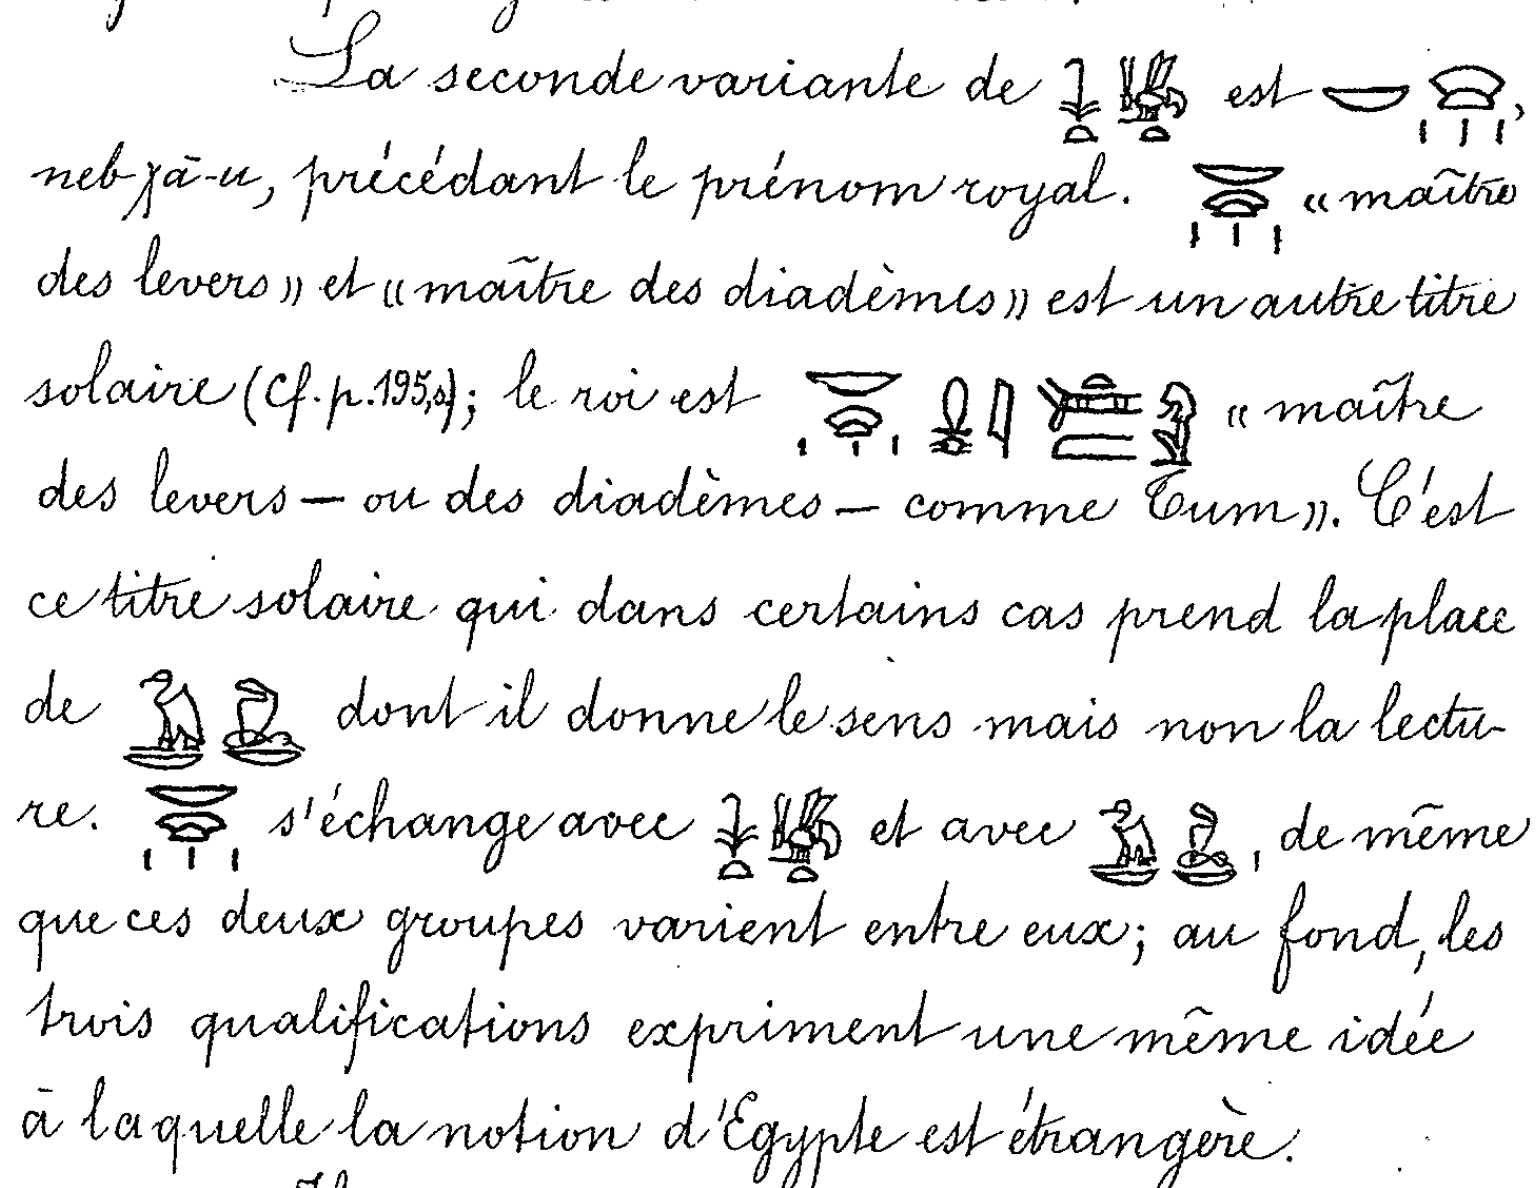 La seconde variante de 𓇓𓏏𓆤𓏏 est 𓎟𓈍𓏥,
neb χā-u, précédant le prénom royal. 𓎟𓈍𓏥 « maître
des levers » et « maître des diadèmes » est un autre titre
solaire (Cf. p. 195,s); le roi est 𓎟𓈍𓏥 𓎛𓇋 « maître
des levers — ou des diadèmes — comme Tum ». C'est
ce titre solaire qui dans certains cas prend la place
de 𓅒𓆗 dont il donne le sens mais non la lectu-
re. 𓎟𓈍𓏥 s'échange avec 𓇓𓏏𓆤𓏏 et avec 𓅒𓆗, de même
que ces deux groupes varient entre eux; au fond, les
trois qualifications expriment une même idée
à laquelle la notion d'Egypte est étrangère.